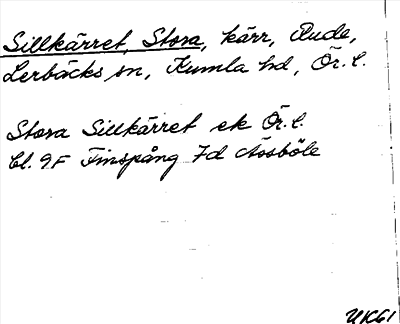 Sillkärret, Stora, kärr, Rude,
Lerbäcks sn, Kumla hd, Ör. l.
Stora Sillkärret ek Ör. l.
Bl. 9F Finspång 7d Åosböle
UK61